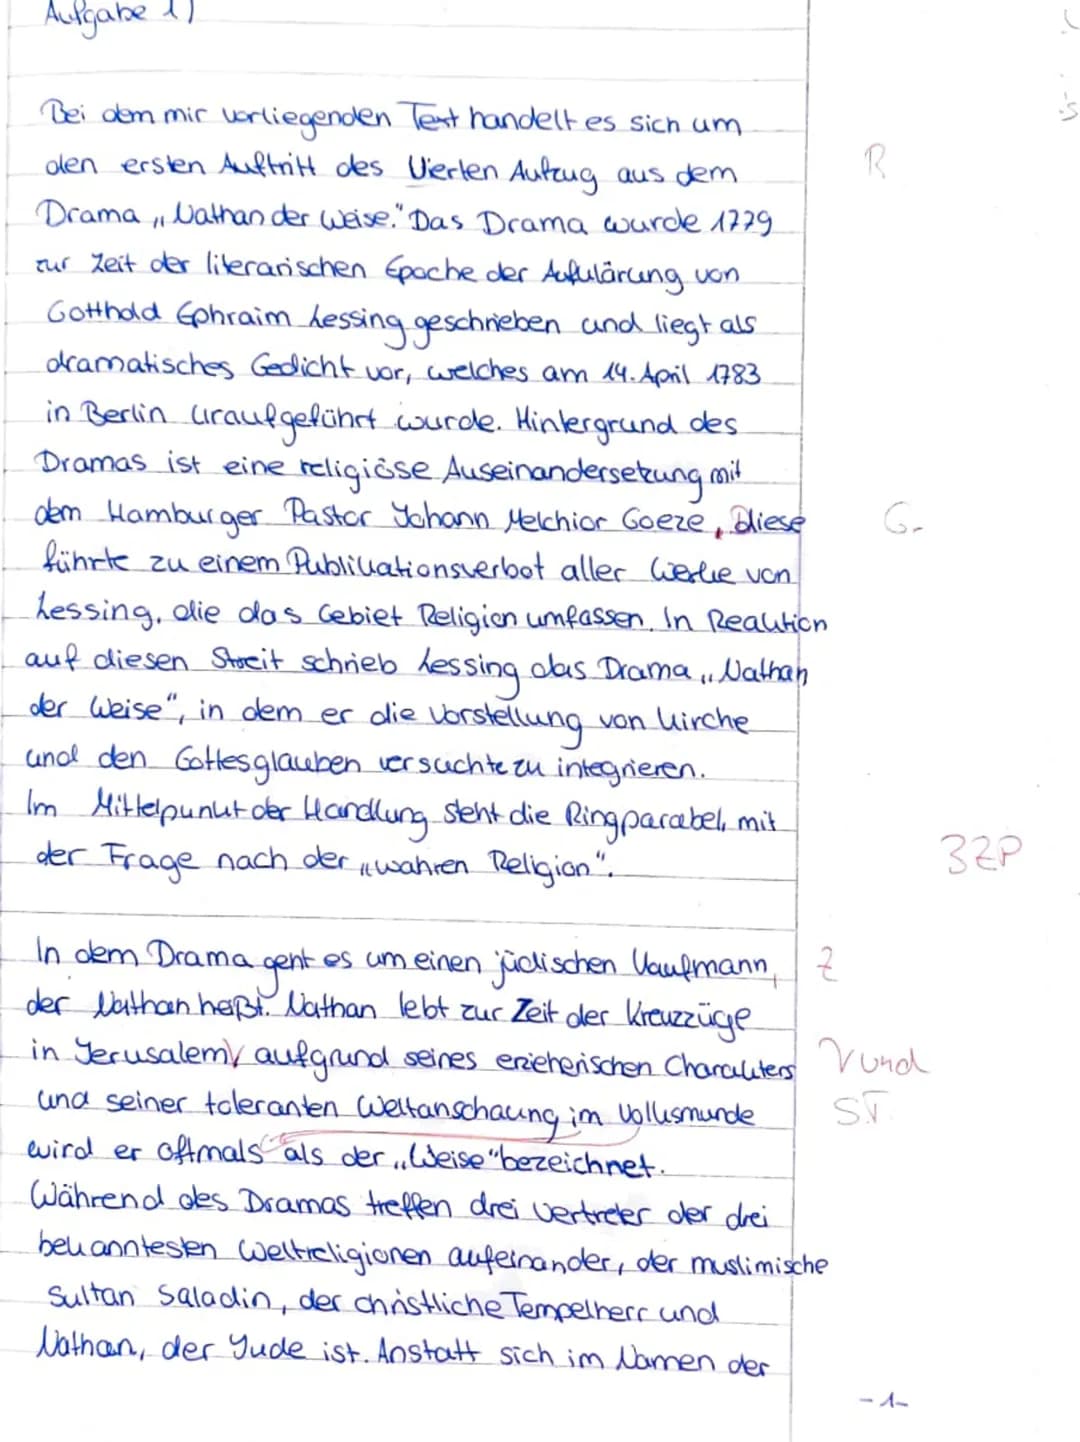 Aufgabe 1)
Bei dem mir vorliegenden Text handelt es sich um
den ersten Auftritt des Vierten Aufzug aus dem
R
Drama „Nathan der Weise." Das Drama wurde 1779
zur Zeit der literarischen Epoche der Aufklärung von
Gotthold Ephraim Lessing geschrieben und liegt als
dramatisches Gedicht vor, welches am 14. April 1783
in Berlin uraufgeführt wurde. Hintergrund des
Dramas ist eine religiöse Auseinandersetzung mit
dem Hamburger Pastor Johann Melchior Goeze, Diese
G.
führte zu einem Publikationsverbot aller Werke von
Lessing, die das Gebiet Religion umfassen. In Reaktion
auf diesen Streit schrieb Lessing das Drama „Nathan
der Weise", in dem er die Vorstellung von Kirche
und den Gottesglauben versuchte zu integrieren.
Im Mittelpunkt der Handlung steht die Ringparabel, mit
der Frage nach der „wahren Religion".
3ZP
In dem Drama geht es um einen jüdischen Kaufmann,
Z
der Nathan heißt. Nathan lebt zur Zeit der Kreuzzüge
in Jerusalem √ aufgrund seines erzieherischen Charakters
√ und
und seiner toleranten Weltanschaung im Volksmunde
ST.
wird er oftmals als der „Weise" bezeichnet.
Während des Dramas treffen drei Vertreter der drei
bekanntesten Weltreligionen aufeinander, der muslimische
Sultan Saladin, der christliche Tempelherr und
Nathan, der Jude ist. Anstatt sich im Namen der
-1-